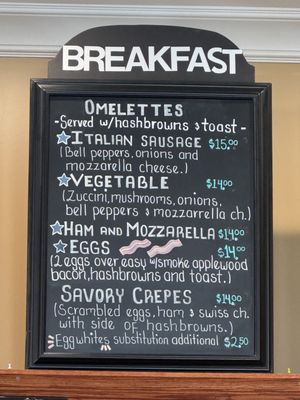 BREAKFAST
OMELETTES
-Served w/hashbrowns & toast-
ITALIAN SAUSAGE $15.00
(Bell peppers, onions and
mozzarella cheese.)
VEGETABLE $14.00
(Zuccini, mushrooms, onions,
bell peppers & mozzarrella ch.)
HAM AND MOZZARELLA $14.00
EGGS $14.00
(2 eggs over easy w/smoke applewood
bacon, hashbrowns and toast.)
SAVORY CREPES $14.00
(Scrambled eggs, ham & swiss ch.
with side of hashbrowns.)
Egg whites substitution additional $2.50